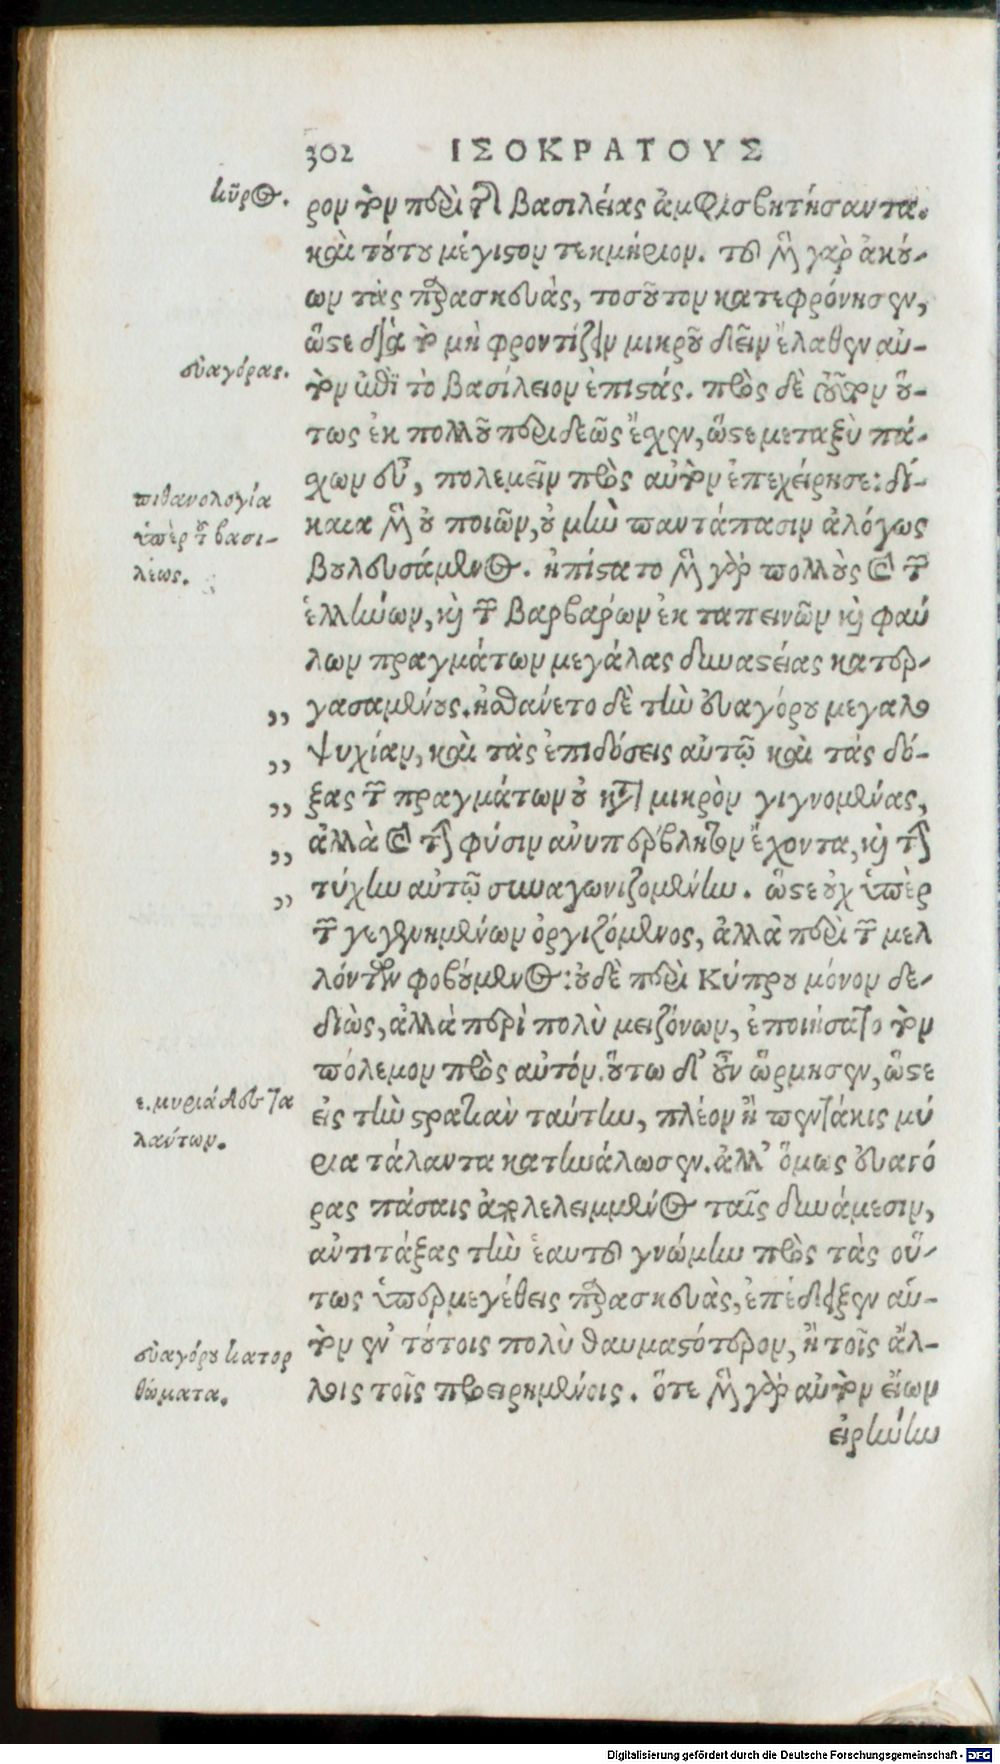 302 ΙΣΟΚΡΑΤΟΥΣ
κῦρος.
ρον τὸν περὶ τῆς βασιλείας ἀμφισβητήσαντα.
καὶ τούτου μέγιστον τεκμήριον. τοῦ μὲν γὰρ ἀκού-
ων τὰς παρασκευὰς, τοσοῦτον κατεφρόνησεν,
ὥστε διὰ τὸ μὴ φροντίζειν μικροῦ δεῖν ἔλαθεν αὐ-
εὐαγόρας.
τὸν ἐπὶ τὸ βασίλειον ἐπιστάς. πρὸς δὲ τοῦτον οὕ-
τως ἐκ πολλοῦ περιδεῶς ἔσχεν, ὥστε μεταξὺ πά-
σχων εὖ, πολεμεῖν πρὸς αὐτὸν ἐπεχείρησε: δί-
πιθανολογία
ὑπὲρ τοῦ βασι-
λέως.
καια μὲν οὐ ποιῶν, οὐ μὴν παντάπασιν ἀλόγως
βουλευσάμενος. ἠπίστατο μὲν γὰρ πολλοὺς καὶ τῶν
ἑλλήνων, καὶ τῶν βαρβάρων ἐκ ταπεινῶν καὶ φαύ
λων πραγμάτων μεγάλας δυναστείας κατερ-
„ γασαμένους. ᾐσθάνετο δὲ τὴν εὐαγόρου μεγαλο
„ ψυχίαν, καὶ τὰς ἐπιδόσεις αὐτῷ καὶ τὰς δό-
„ ξας τῶν πραγμάτων οὐ κατὰ μικρὸν γιγνομένας,
„ ἀλλὰ καὶ τὴν φύσιν ἀνυπέρβλητον ἔχοντα, καὶ τὴν
„ τύχην αὐτῷ συναγωνιζομένην. ὥστε οὐχ ὑπὲρ
τῶν γεγενημένων ὀργιζόμενος, ἀλλὰ περὶ τῶν μελ
λόντων φοβούμενος: οὐδὲ περὶ Κύπρου μόνον δε-
διὼς, ἀλλὰ περὶ πολὺ μειζόνων, ἐποιήσατο τὸν
πόλεμον πρὸς αὐτόν. οὕτω δ’ οὖν ὥρμησεν, ὥστε
ε. μυριάδες τα
λάντων.
εἰς τὴν στρατιὰν ταύτην, πλέον ἢ πεντάκις μύ
ρια τάλαντα κατηνάλωσεν. ἀλλ’ ὅμως εὐαγό
ρας πάσαις ἀπολελειμμένος ταῖς δυνάμεσιν,
ἀντιτάξας τὴν ἑαυτοῦ γνώμην πρὸς τὰς οὕ-
τως ὑπερμεγέθεις παρασκευὰς, ἐπέδειξεν αὑ-
εὐαγόρου κατορ
θώματα.
τὸν ἐν τούτοις πολὺ θαυμαστότερον, ἢ τοῖς ἄλ-
λοις τοῖς προειρημένοις. ὅτε μὲν γὰρ αὐτὸν εἴων
εἰρήνην
Digitalisierung gefördert durch die Deutsche Forschungsgemeinschaft - DFG